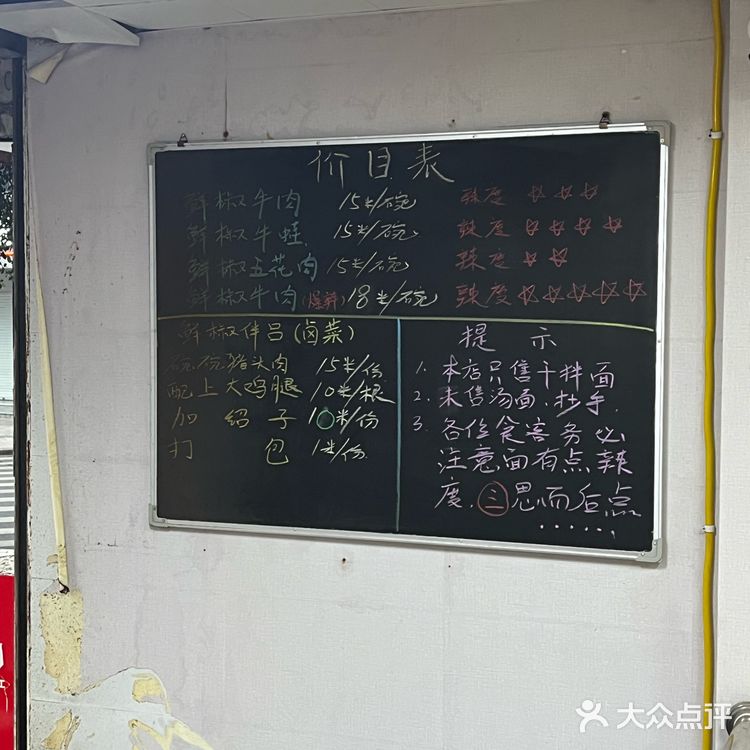 价目表
鲜椒牛肉 15米/碗 辣度 ☆☆☆
鲜椒牛蛙 15米/碗 辣度 ☆☆☆☆
鲜椒五花肉 15米/碗 辣度 ☆☆
鲜椒牛肉(爆辣) 18米/碗 辣度 ☆☆☆☆☆
鲜椒伴吕(卤菜)
碗碗猪头肉 15米/份
配上大鸡腿 10米/根
加绍子 10米/份
打包 1米/份
提示
1. 本店只售干拌面
2. 未售汤面、抄手.
3. 各位食客务必
注意面有点辣
度, 三思而后点
......,
大众点评